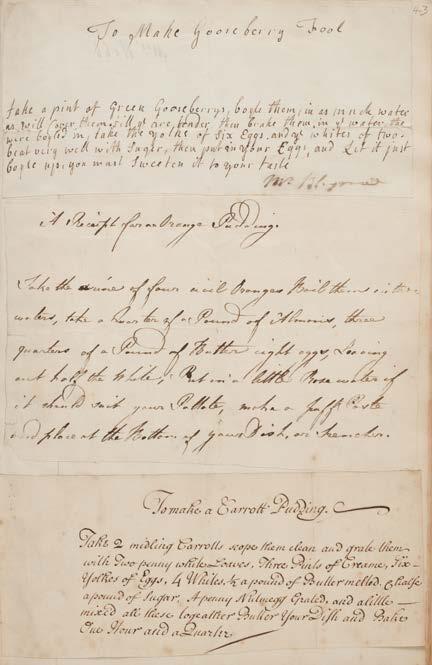 43
To Make Gooseberry Fool
take a pint of Green Gooseberrys, boyle them, in as much water
as will cover them till ye are tender then brake them in ye water the
were boyled in, take the yolks of Six Eggs, and ye whites of two-
beat very well with Sugar, then put in your Eggs, and Let it just
boyle up, you must Sweeten it to your taste
A Receipt for an Orange Pudding.
Take the of four Oranges Boil them in three
waters, take a quarter of a Pound of Almons, three
quarters of a Pound of Butter eight eggs, Leving
out half the White, Put in a little Rose water if
it should suit your Pallate, make a puff Paste
and place at the Bottom of your Dish, or
To make a Carrott Pudding.
Take 2 midling Carrotts scope them clean and grate them
with Two penny white Loaves, Three Pints of Creame, Six-
Yolkes of Eggs, 4 Whites, ½ a pound of Butter melted, & halfe
a pound of Sugar, A penny Nutmegg Grated, and a little
mixed all these togeather Butter Your Dish and Bake
One Hour and a Quarter